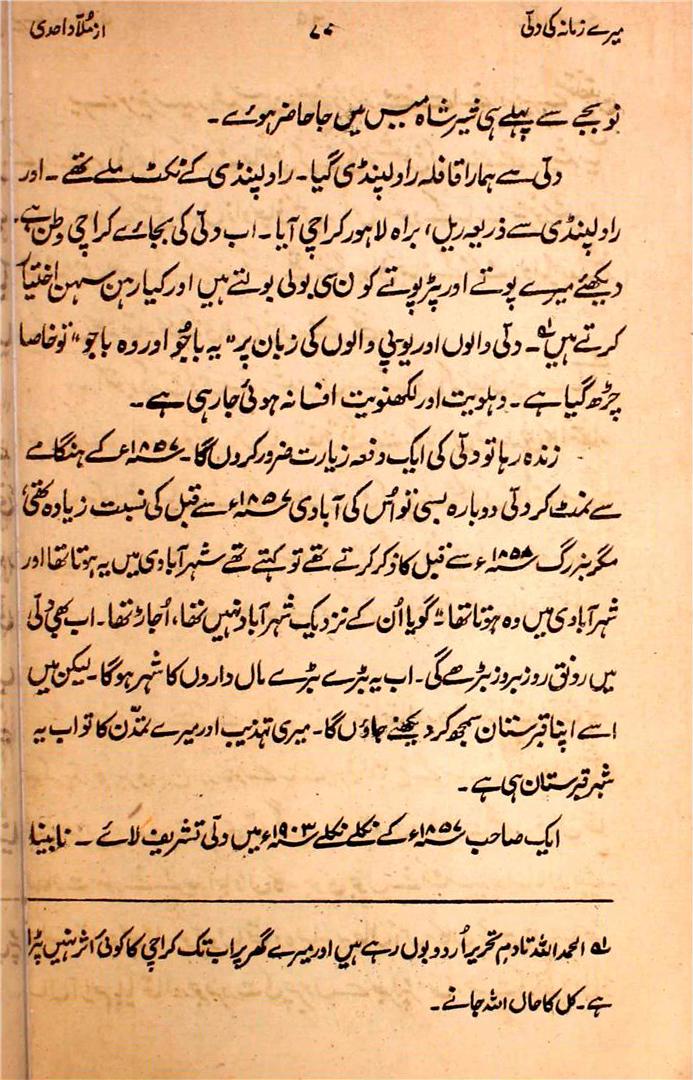 میرے زمانہ کی دلّی ۷۰ از مُلّا واحدی
نو بجے سے پہلے ہی شیر شاہ میس میں جا حاضر ہوئے۔
دلّی سے ہمارا قافلہ راولپنڈی گیا۔ راولپنڈی کے ٹکٹ ملے تھے۔ اور
راولپنڈی سے ذریعہ ریل، براہ لاہور کراچی آیا۔ اب دلّی کی بجائے کراچی وطن ہے۔
دیکھئے میرے پوتے اور پڑپوتے کون سی بولی بولتے ہیں اور کیا رہن سہن اختیار
کرتے ہیں ؎۱۔ دلّی والوں اور یوپی والوں کی زبان پر "یہ باجُو اور وہ باجو" تو خاصا
چڑھ گیا ہے۔ دہلویت اور لکھنویت افسانہ ہوئی جا رہی ہے۔
زندہ رہا تو دلّی کی ایک دفعہ زیارت ضرور کروں گا۔ ۱۸۵۷ء کے ہنگامے
سے نمٹ کر دلّی دوبارہ بسی تو اُس کی آبادی ۱۸۵۷ء سے قبل کی نسبت زیادہ تھی
مگر بزرگ ۱۸۵۷ء سے قبل کا ذکر کرتے تھے تو کہتے تھے شہر آبادی میں یہ ہوتا تھا اور
شہر آبادی میں وہ ہوتا تھا"۔ گویا اُن کے نزدیک شہر آباد نہیں تھا، اُجاڑ تھا۔ اب بھی دلّی
میں رونق روز بروز بڑھے گی۔ اب یہ بڑے بڑے مال داروں کا شہر ہوگا۔ لیکن میں
اسے اپنا قبرستان سمجھ کر دیکھنے جاؤں گا۔ میری تہذیب اور میرے تمدّن کا تو اب یہ
شہر قبرستان ہی ہے۔
ایک صاحب ۱۸۵۷ء کے نکلے نکلے ۱۹۰۳ء میں دلّی تشریف لائے۔ نابینا
؎۱ الحمد اللہ تادمِ تحریر اُردو بول رہے ہیں اور میرے گھر پر اب تک کراچی کا کوئی اثر نہیں پڑا
ہے۔ کل کا حال اللہ جانے۔